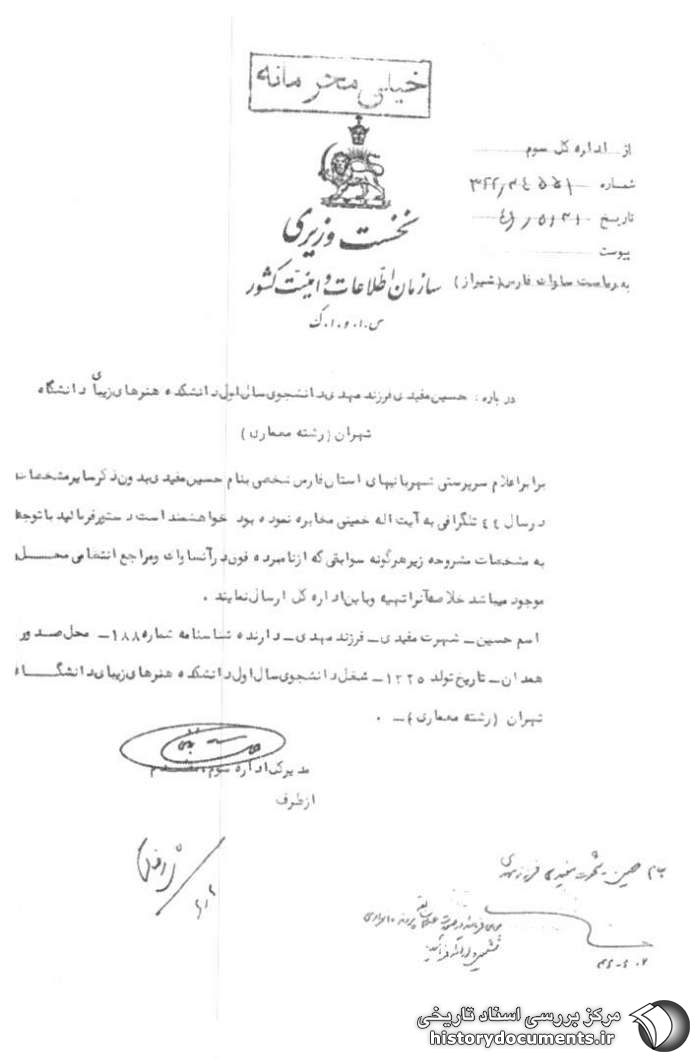 خیلی محرمانه
از اداره کل سوم
شماره
تاریخ
پیوست
به ریاست ساواک فارس (شیراز)
نخست وزیری
سازمان اطلاعات و امنیت کشور
س.ا.و.ا.ک
درباره: حسین مفیدی فرزند مهدی دانشجوی سال اول دانشکده هنرهای زیبای دانشگاه
تهران (رشته معماری)
برابر اعلام سرپرستی شهربانیهای استان فارس شخصی بنام حسین مفیدی بدون ذکر سایر مشخصات
در سال ٤٤ تلگرافی به آیت اله خمینی مخابره نموده بود خواهشمند است دستور فرمائید با توجه
به مشخصات مشروحه زیر هرگونه سوابقی که از نامبرده فوق در آن ساواک و مراجع انتظامی محل
موجود میباشد خلاصه آنرا تهیه و باین اداره کل ارسال نمایند.
اسم حسین ـ شهرت مفیدی ـ فرزند مهدی ـ دارنده شناسنامه شماره ١٨٨ ـ محل صدور
همدان ـ تاریخ تولد ١٣٢٥ ـ شغل دانشجوی سال اول دانشکده هنرهای زیبای دانشگاه
تهران (رشته معماری) ـ .
مدیرکل اداره سوم
از طرف
حسین شهرت مفیدی فرزند مهدی
مرکز بررسی اسناد تاریخی
historydocuments.ir